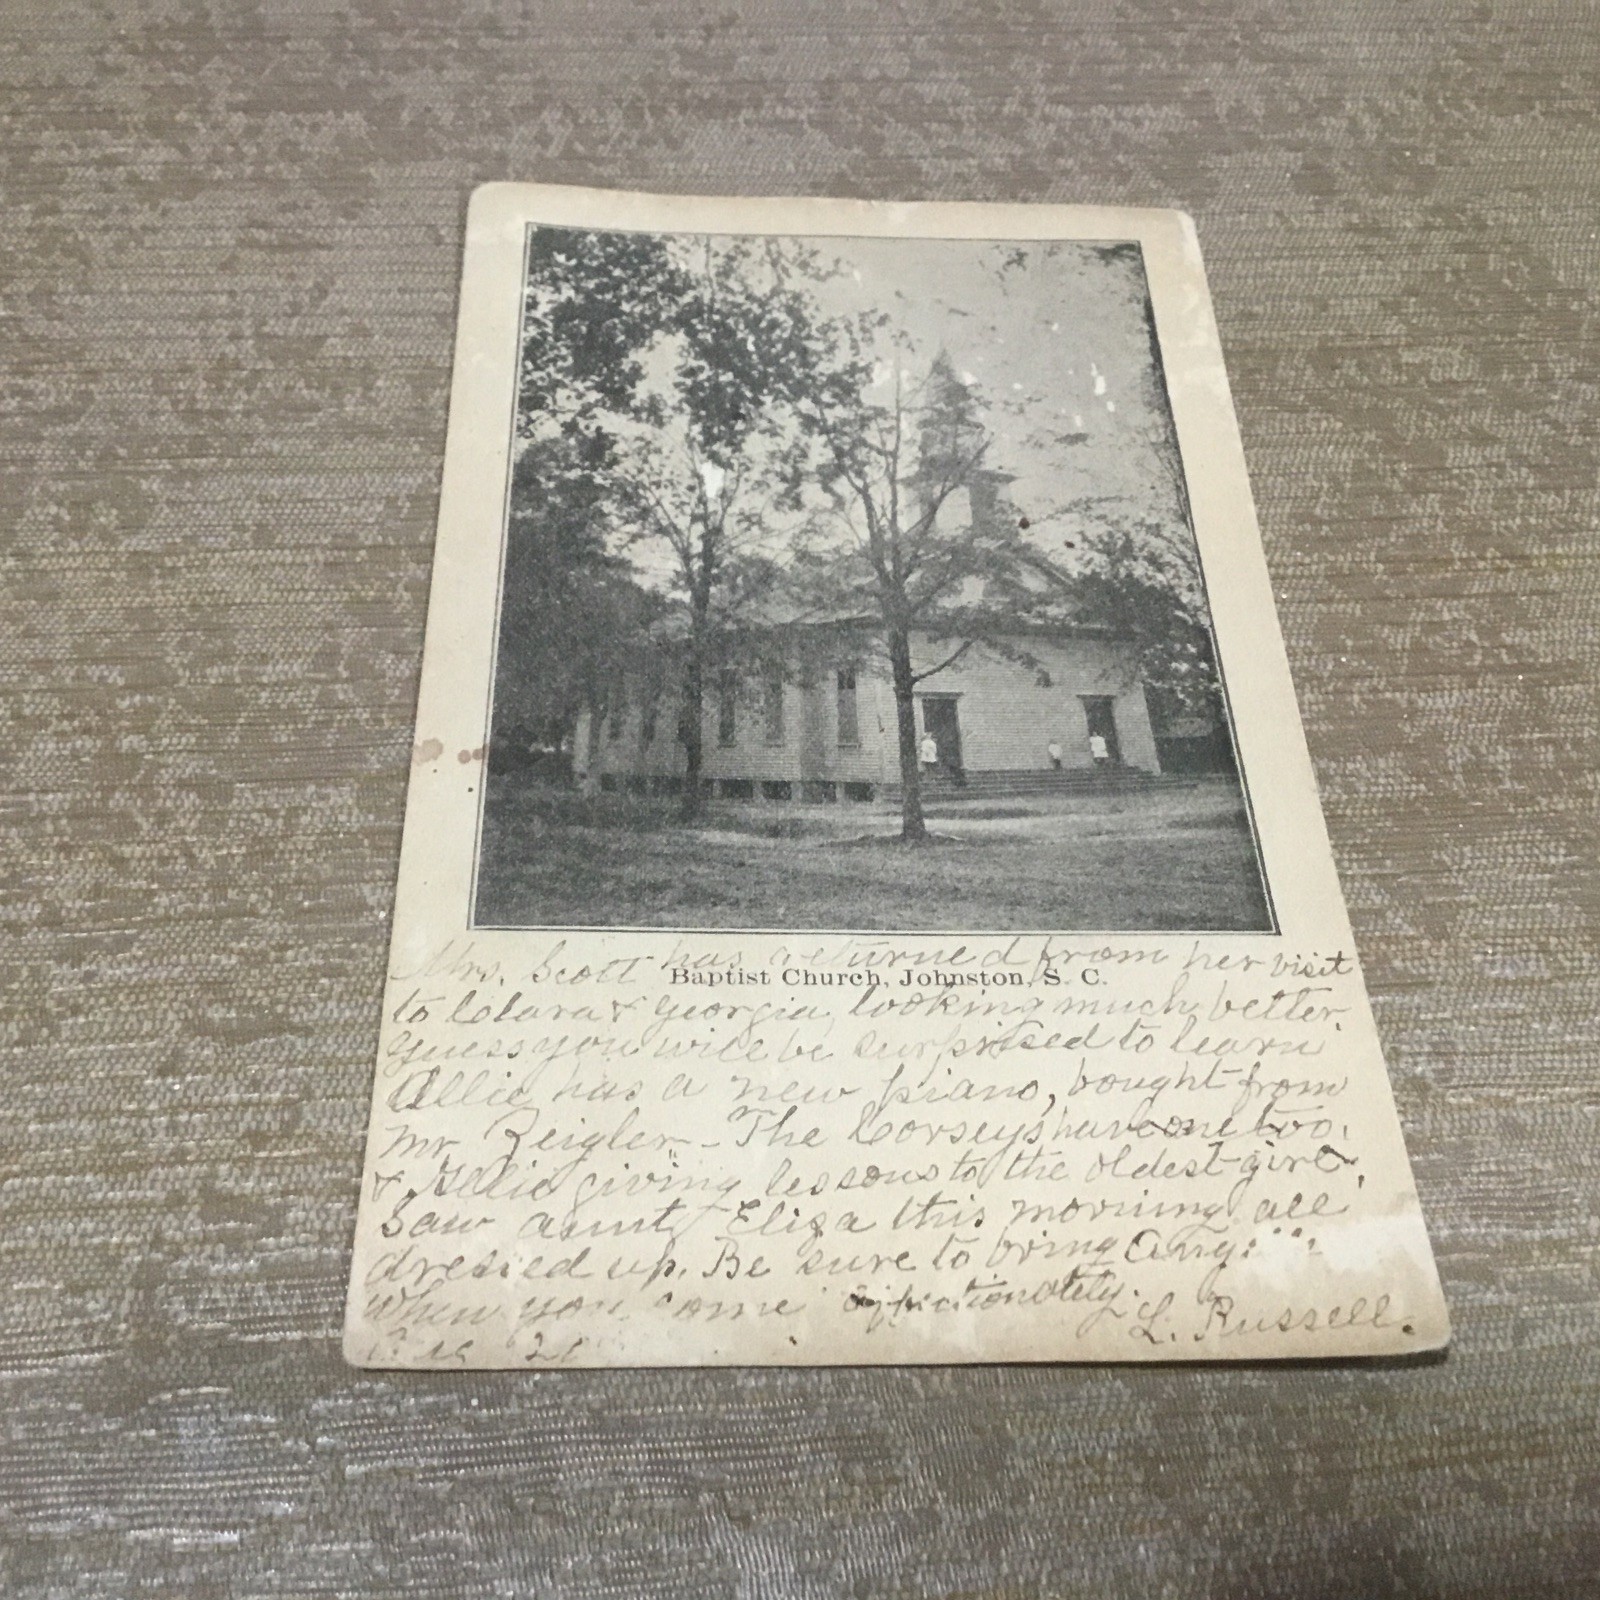 Mrs. Scott has returned from her visit
Baptist Church, Johnston, S. C.
to Clara & Georgia, looking much better.
Guess you will be surprised to learn
Allie has a new piano, bought from
Mr Zeigler - The Corseys have one too,
& Allie giving lessons to the oldest girl.
Saw aunt Eliza this morning all
dressed up. Be sure to bring
when you come affectionately.
L. Russell.